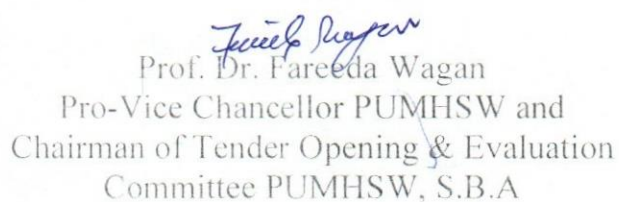 Prof. Dr. Fareeda Wagan
Pro-Vice Chancellor PUMHSW and
Chairman of Tender Opening & Evaluation
Committee PUMHSW, S.B.A